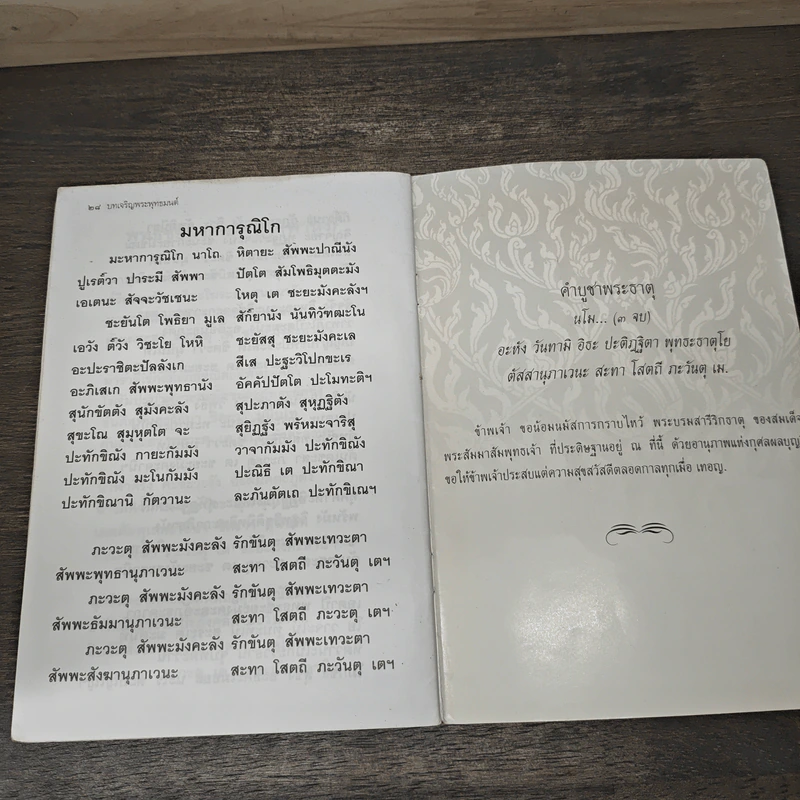 ๒๘ บทเจริญพระพุทธมนต์
มหาการุณิโก
มะหาการุณิโก นาโถ หิตายะ สัพพะปาณีนัง
ปูเรต๎วา ปาระมี สัพพา ปัตโต สัมโพธิมุตตะมัง
เอเตนะ สัจจะวัชเชนะ โหตุ เต ชะยะมังคะลังฯ
ชะยันโต โพธิยา มูเล สัก๎ยานัง นันทิวัฑฒะโน
เอวัง ต๎วัง วิชะโย โหหิ ชะยัสสุ ชะยะมังคะเล
อะปะราชิตะปัลลังเก สีเส ปะฐะวิโปกขะเร
อะภิเสเก สัพพะพุทธานัง อัคคัปปัตโต ปะโมทะติฯ
สุนักขัตตัง สุมังคะลัง สุปะภาตัง สุหุฏฐิตัง
สุขะโณ สุมุหุตโต จะ สุยิฏฐัง พรัหมะจาริสุ
ปะทักขิณัง กายะกัมมัง วาจากัมมัง ปะทักขิณัง
ปะทักขิณัง มะโนกัมมัง ปะณิธี เต ปะทักขิณา
ปะทักขิณานิ กัตวานะ ละภันตัตเถ ปะทักขิเณฯ
ภะวะตุ สัพพะมังคะลัง รักขันตุ สัพพะเทวะตา
สัพพะพุทธานุภาเวนะ สะทา โสตถี ภะวันตุ เตฯ
ภะวะตุ สัพพะมังคะลัง รักขันตุ สัพพะเทวะตา
สัพพะธัมมานุภาเวนะ สะทา โสตถี ภะวะตุ เตฯ
ภะวะตุ สัพพะมังคะลัง รักขันตุ สัพพะเทวะตา
สัพพะสังฆานุภาเวนะ สะทา โสตถี ภะวันตุ เตฯ
คำบูชาพระธาตุ
นโม... (๓ จบ)
อะหัง วันทามิ อิธะ ปะติฏฐิตา พุทธะธาตุโย
ตัสสานุภาเวนะ สะทา โสตถี ภะวันตุ เม.
ข้าพเจ้า ขอน้อมนมัสการกราบไหว้ พระบรมสารีริกธาตุ ของสมเด็จ
พระสัมมาสัมพุทธเจ้า ที่ประดิษฐานอยู่ ณ ที่นี้ ด้วยอานุภาพแห่งกุศลผลบุญ
ขอให้ข้าพเจ้าประสบแต่ความสุขสวัสดีตลอดกาลทุกเมื่อ เทอญ.